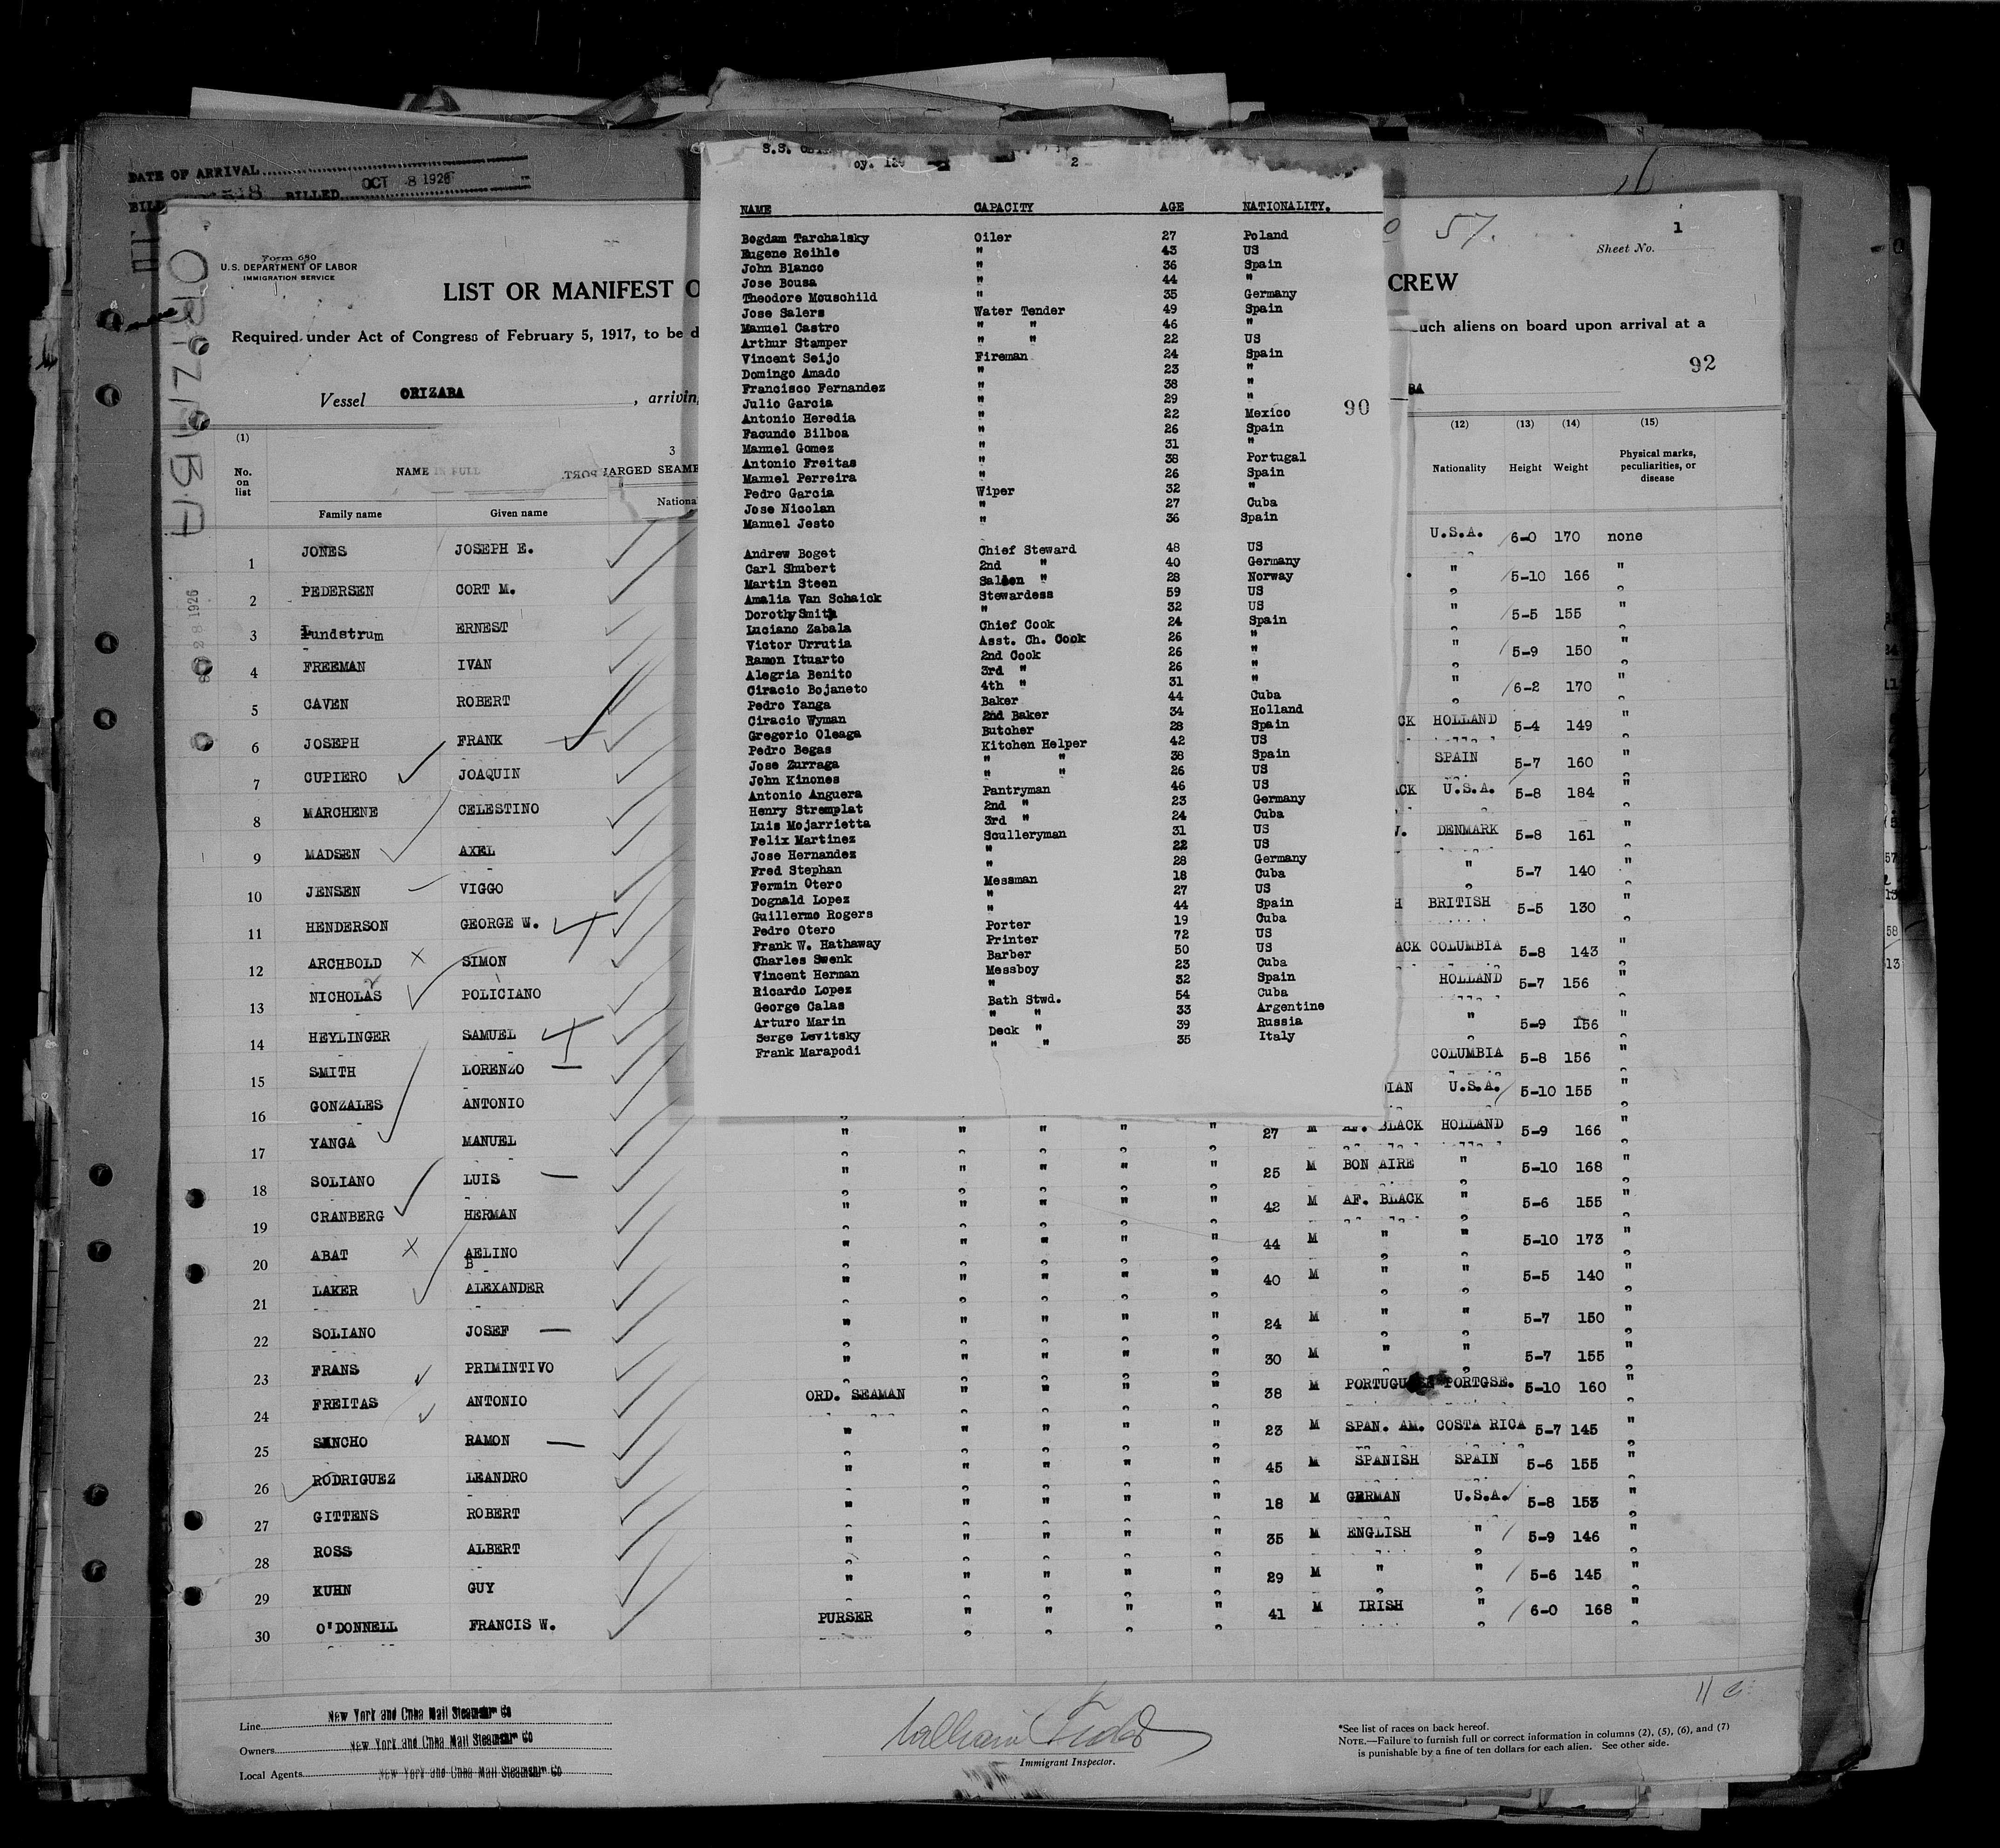 DATE OF ARRIVAL
BILLED OCT 8 1926
ORIZABA
Form 680
U.S. DEPARTMENT OF LABOR
IMMIGRATION SERVICE
57.
Sheet No. 1
LIST OR MANIFEST O
CREW
Required under Act of Congress of February 5, 1917, to be d
uch aliens on board upon arrival at a
92
Vessel ORIZABA , arriving
BA
(1) 3 (12) (13) (14) (15)
No. on list NAME IN FULL ARGED SEAME Nationality Height Weight Physical marks, peculiarities, or disease
Family name Given name Nationa
1 JONES JOSEPH E. U.S.A. 6-0 170 none
2 PEDERSEN CORT M. " 5-10 166 "
3 Lundstrum ERNEST " 5-5 155 "
4 FREEMAN IVAN " 5-9 150 "
5 CAVEN ROBERT " 6-2 170 "
6 JOSEPH FRANK CK HOLLAND 5-4 149 "
7 CUPIERO JOAQUIN SPAIN 5-7 160 "
8 MARCHENE CELESTINO ACK U.S.A. 5-8 184 "
9 MADSEN AXEL DENMARK 5-8 161 "
10 JENSEN VIGGO " 5-7 140 "
11 HENDERSON GEORGE W. H BRITISH 5-5 130 "
12 ARCHBOLD SIMON ACK COLUMBIA 5-8 143 "
13 NICHOLAS POLICIANO HOLLAND 5-7 156 "
14 HEYLINGER SAMUEL " 5-9 156 "
15 SMITH LORENZO COLUMBIA 5-8 156 "
16 GONZALES ANTONIO DIAN U.S.A. 5-10 155 "
17 YANGA MANUEL " " " " " 27 M AF. BLACK HOLLAND 5-9 166 "
18 SOLIANO LUIS " " " " " 25 M BON AIRE " 5-10 168 "
19 CRANBERG HERMAN " " " " " 42 M AF. BLACK " 5-6 155 "
20 ABAT AELINO B " " " " " 44 M " " 5-10 173 "
21 LAKER ALEXANDER " " " " " 40 M " " 5-5 140 "
22 SOLIANO JOSEF " " " " " 24 M " " 5-7 150 "
23 FRANS PRIMINTIVO " " " " " 30 M " " 5-7 155 "
24 FREITAS ANTONIO ORD. SEAMAN " " " " 38 M PORTUGU PORTGSE. 5-10 160 "
25 SANCHO RAMON " " " " " 23 M SPAN. AM. COSTA RICA 5-7 145 "
26 RODRIGUEZ LEANDRO " " " " " 45 M SPANISH SPAIN 5-6 155 "
27 GITTENS ROBERT " " " " " 18 M GERMAN U.S.A. 5-8 153 "
28 ROSS ALBERT " " " " " 35 M ENGLISH " 5-9 146 "
29 KUHN GUY " " " " " 29 M " " 5-6 145 "
30 O'DONNELL FRANCIS W. PURSER " " " " 41 M IRISH " 6-0 168 "
S.S.
oy. 2
NAME CAPACITY AGE NATIONALITY.
90
Bogdam Tarchalsky Oiler 27 Poland
Eugene Reihle " 43 US
John Blanco " 36 Spain
Jose Bousa " 44 "
Theodore Mouschild " 35 Germany
Jose Salers Water Tender 49 Spain
Manuel Castro " " 46 "
Arthur Stamper " " 22 US
Vincent Seijo Fireman 24 Spain
Domingo Amado " 23 "
Francisco Fernandez " 38 "
Julio Garcia " 29 "
Antonio Heredia " 22 Mexico
Facundo Bilboa " 26 Spain
Manuel Gomez " 31 "
Antonio Freitas " 38 Portugal
Manuel Perreira " 26 Spain
Pedro Garcia Wiper 32 "
Jose Nicolan " 27 Cuba
Manuel Jesto " 36 Spain
Andrew Boget Chief Steward 48 US
Carl Shubert 2nd " 40 Germany
Martin Steen Saloon " 28 Norway
Amalia Van Schaick Stewardess 59 US
Dorothy Smith " 32 US
Luciano Zabala Chief Cook 24 Spain
Victor Urrutia Asst. Ch. Cook 26 "
Ramon Ituarto 2nd Cook 26 "
Alegria Benito 3rd " 26 "
Ciracio Bojaneto 4th " 31 "
Pedro Yanga Baker 44 Cuba
Ciracio Wyman 2nd Baker 34 Holland
Gregorio Oleaga Butcher 28 Spain
Pedro Begas Kitchen Helper 42 US
Jose Zurraga " " 38 Spain
John Kinones " " 26 US
Antonio Anguera Pantryman 46 US
Henry Stremplat 2nd " 23 Germany
Luis Mojarrietta 3rd " 24 Cuba
Felix Martinez Sculleryman 31 US
Jose Hernandez " 22 US
Fred Stephan " 28 Germany
Fermin Otero Messman 18 Cuba
Dognald Lopez " 27 US
Guillermo Rogers " 44 Spain
Pedro Otero Porter 19 Cuba
Frank W. Hathaway Printer 72 US
Charles Swenk Barber 50 US
Vincent Herman Messboy 23 Cuba
Ricardo Lopez " 32 Spain
George Calas Bath Stwd. 54 Cuba
Arturo Marin " " 33 Argentine
Serge Levitsky Deck " 39 Russia
Frank Marapodi " " 35 Italy
Line New York and Cuba Mail Steamship Co
Owners New York and Cuba Mail Steamship Co
Local Agents New York and Cuba Mail Steamship Co
Immigrant Inspector.
*See list of races on back hereof.
NOTE.—Failure to furnish full or correct information in columns (2), (5), (6), and (7)
is punishable by a fine of ten dollars for each alien. See other side.